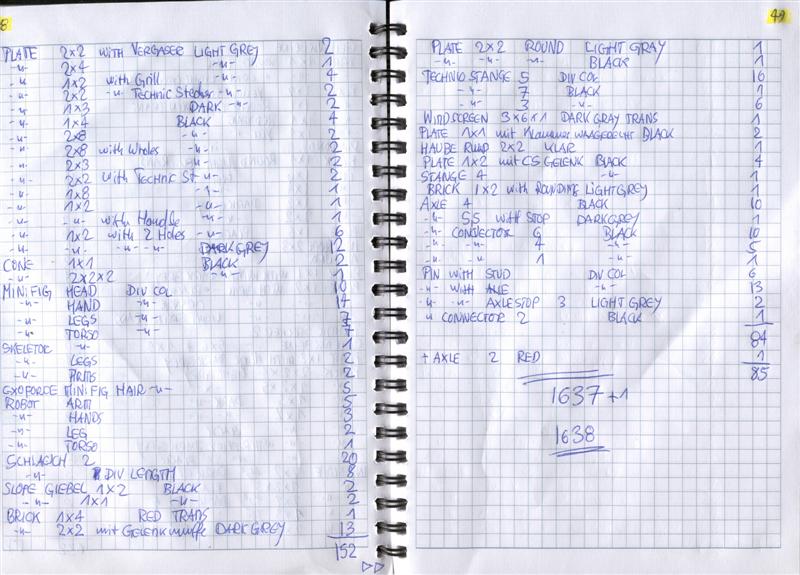 8
PLATE 2x2 with VERGASER LIGHT GREY 2
-"- 2x4 -"- 1
-"- 1x2 with Grill -"- 4
-"- 2x2 -"- Technic Stecker -"- 2
-"- 1x3 DARK -"- 2
-"- 1x4 BLACK 4
-"- 2x8 -"- 2
-"- 2x8 with Wholes -"- 2
-"- 2x3 -"- 2
-"- 2x2 with Technic St -"- 2
-"- 1x8 -"- 1
-"- 1x2 -"- 1
-"- -"- with Handle -"- 1
-"- 1x2 with 2 Holes -"- 6
-"- -"- -"- -"- DARK GREY 12
CONE 1x1 BLACK 2
-"- 2x2x2 -"- 1
MINIFIG HEAD DIV COL 10
-"- HAND -"- 14
-"- LEGS -"- 7
-"- TORSO -"- 7
SKELETOR -"- 1
-"- LEGS 2
-"- ARMS 2
EXOFORCE MINIFIG HAIR -"- 5
ROBOT ARM 5
-"- HANDS 3
-"- LEG 2
-"- TORSO 1
SCHLAUCH 2 20
-"- DIV LENGTH 8
SLOPE GIEBEL 1x2 BLACK 2
-"- 1x1 -"- 2
BRICK 1x4 RED TRANS 1
-"- 2x2 mit Gelenkmuffe DARK GREY 13
152
▷▷
49
PLATE 2x2 ROUND LIGHT GRAY 1
-"- -"- -"- BLACK 1
TECHNIC STANGE 5 DIV COL 16
-"- 7 BLACK 1
-"- 3 -"- 6
WINDSCREEN 3x6x1 DARK GRAY TRANS 1
PLATE 1x1 mit Klammer WAAGERECHT BLACK 2
HAUBE RUND 2x2 KLAR 1
PLATE 1x2 mit CS GELENK BLACK 4
STANGE 4 -"- 1
BRICK 1x2 with ROUNDING LIGHT GREY 1
AXLE 4 BLACK 10
-"- 5,5 WITH STOP DARK GREY 1
-"- CONNECTOR 6 BLACK 10
-"- -"- 4 -"- 5
-"- -"- 1 -"- 1
PIN WITH STUD DIV COL 6
-"- WITH AXLE -"- 13
-"- -"- AXLE STOP 3 LIGHT GREY 2
-"- CONNECTOR 2 BLACK 1
84
+ AXLE 2 RED 1
85
1637 +1
1638